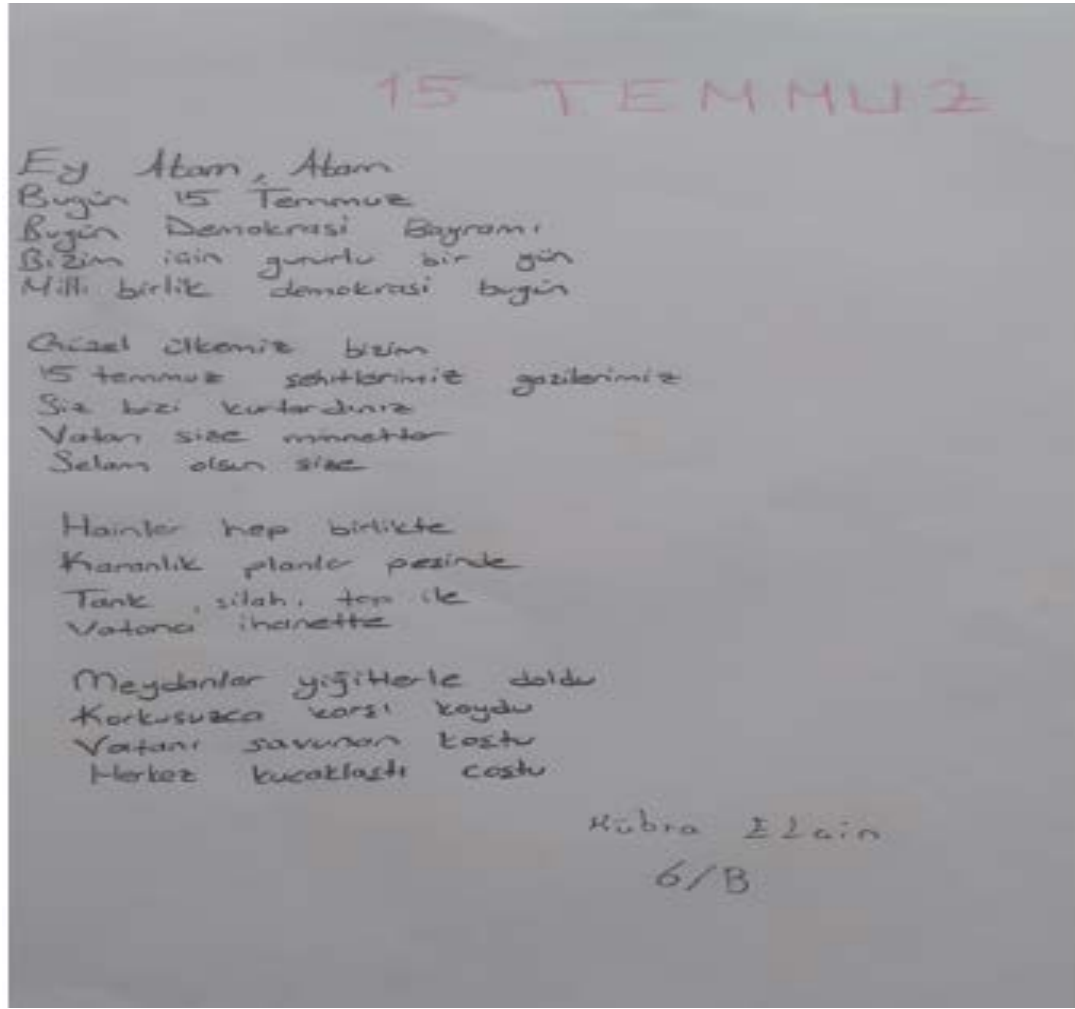 15 TEMMUZ
Ey Atam, Atam
Bugün 15 Temmuz
Bugün Demokrasi Bayramı
Bizim için gururlu bir gün
Milli birlik demokrasi bugün
Güzel ülkemiz bizim
15 temmuz şehitlerimiz gazilerimiz
Siz bizi kurtardınız
Vatan size minnettar
Selam olsun size
Hainler hep birlikte
Karanlık planlar peşinde
Tank, silah, top ile
Vatana ihanette
Meydanlar yiğitlerle doldu
Korkusuzca karşı koydu
Vatanı savunan koştu
Herkez kucaklaştı coştu
Kübra
6/B